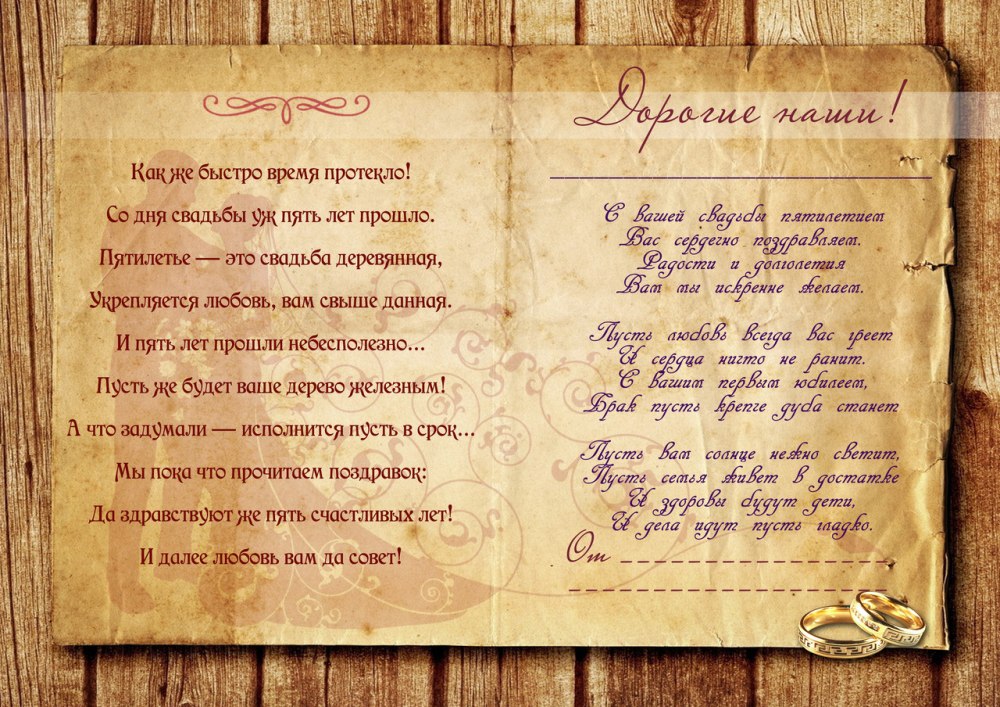 Как же быстро время протекло!
Со дня свадьбы уж пять лет прошло.
Пятилетье — это свадьба деревянная,
Укрепляется любовь, вам свыше данная.
И пять лет прошли небесполезно...
Пусть же будет ваше дерево железным!
А что задумали — исполнится пусть в срок...
Мы пока что прочитаем поздравок:
Да здравствуют же пять счастливых лет!
И далее любовь вам да совет!
Дорогие наши!
С вашей свадьбы пятилетием
Вас сердечно поздравляем.
Радости и долголетия
Вам мы искренне желаем.
Пусть любовь всегда вас греет
И сердца ничто не ранит.
С вашим первым юбилеем,
Брак пусть крепче дуба станет
Пусть вам солнце нежно светит,
Пусть семья живет в достатке
И здоровы будут дети,
И дела идут пусть гладко.
От